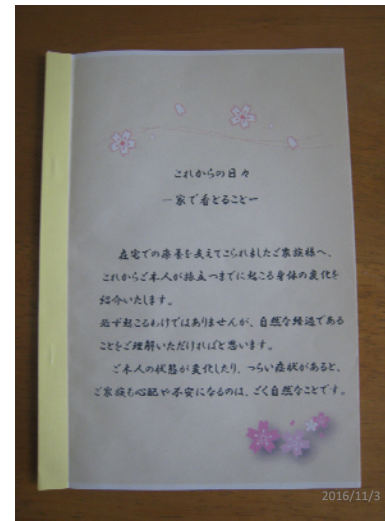 これからの日々
－家で看とること－
在宅での療養を支えてこられましたご家族様へ、
これからご本人が旅立つまでに起こる身体の変化を
紹介いたします。
必ず起こるわけではありませんが、自然な経過である
ことをご理解いただければと思います。
ご本人の状態が変化したり、つらい症状があると、
ご家族も心配や不安になるのは、ごく自然なことです。
2016/11/3